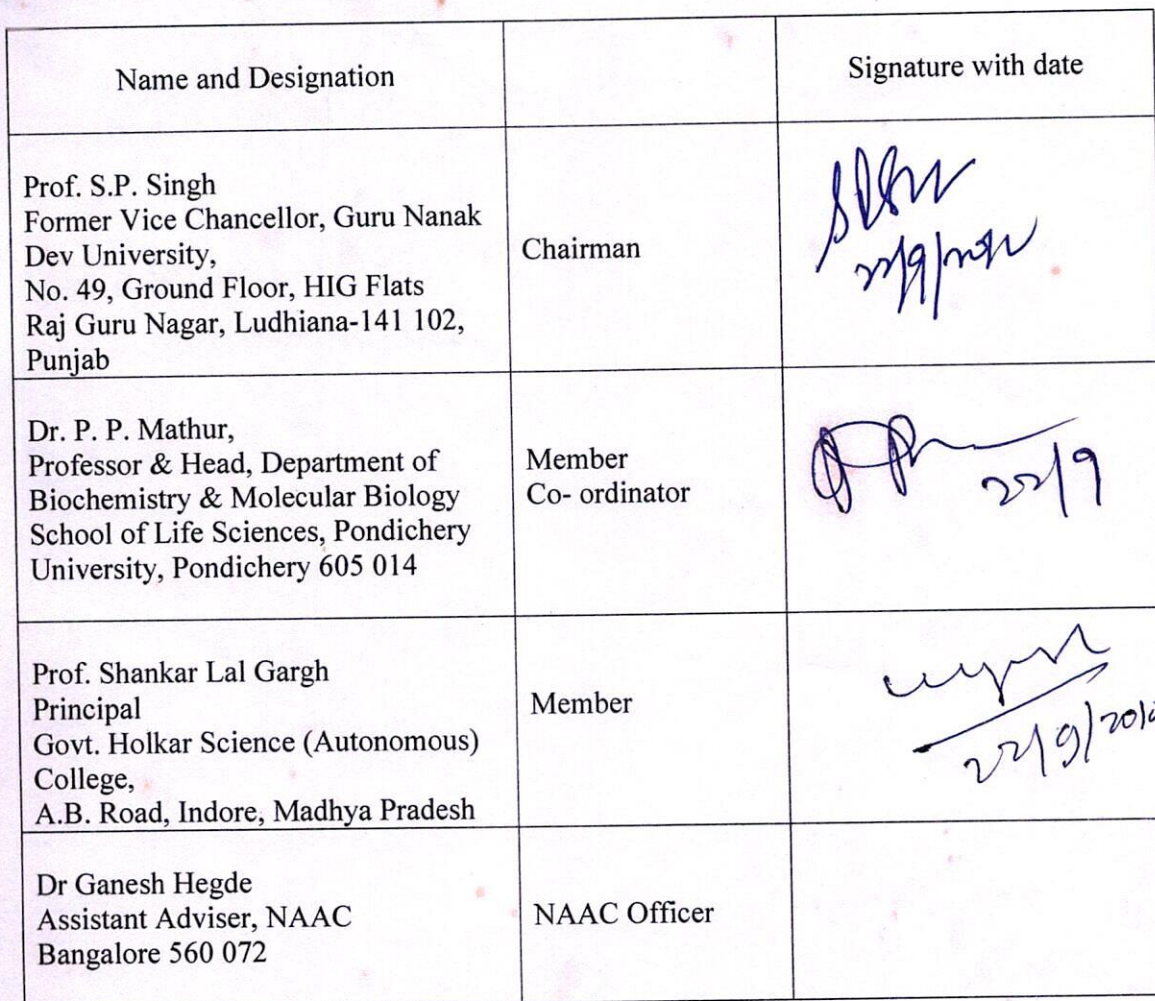 Name and Designation
Signature with date
Prof. S.P. Singh
Former Vice Chancellor, Guru Nanak
Dev University,
No. 49, Ground Floor, HIG Flats
Raj Guru Nagar, Ludhiana-141 102,
Punjab
Chairman
Dr. P. P. Mathur,
Professor & Head, Department of
Biochemistry & Molecular Biology
School of Life Sciences, Pondichery
University, Pondichery 605 014
Member
Co- ordinator
22/9
Prof. Shankar Lal Gargh
Principal
Govt. Holkar Science (Autonomous)
College,
A.B. Road, Indore, Madhya Pradesh
Member
Dr Ganesh Hegde
Assistant Adviser, NAAC
Bangalore 560 072
NAAC Officer